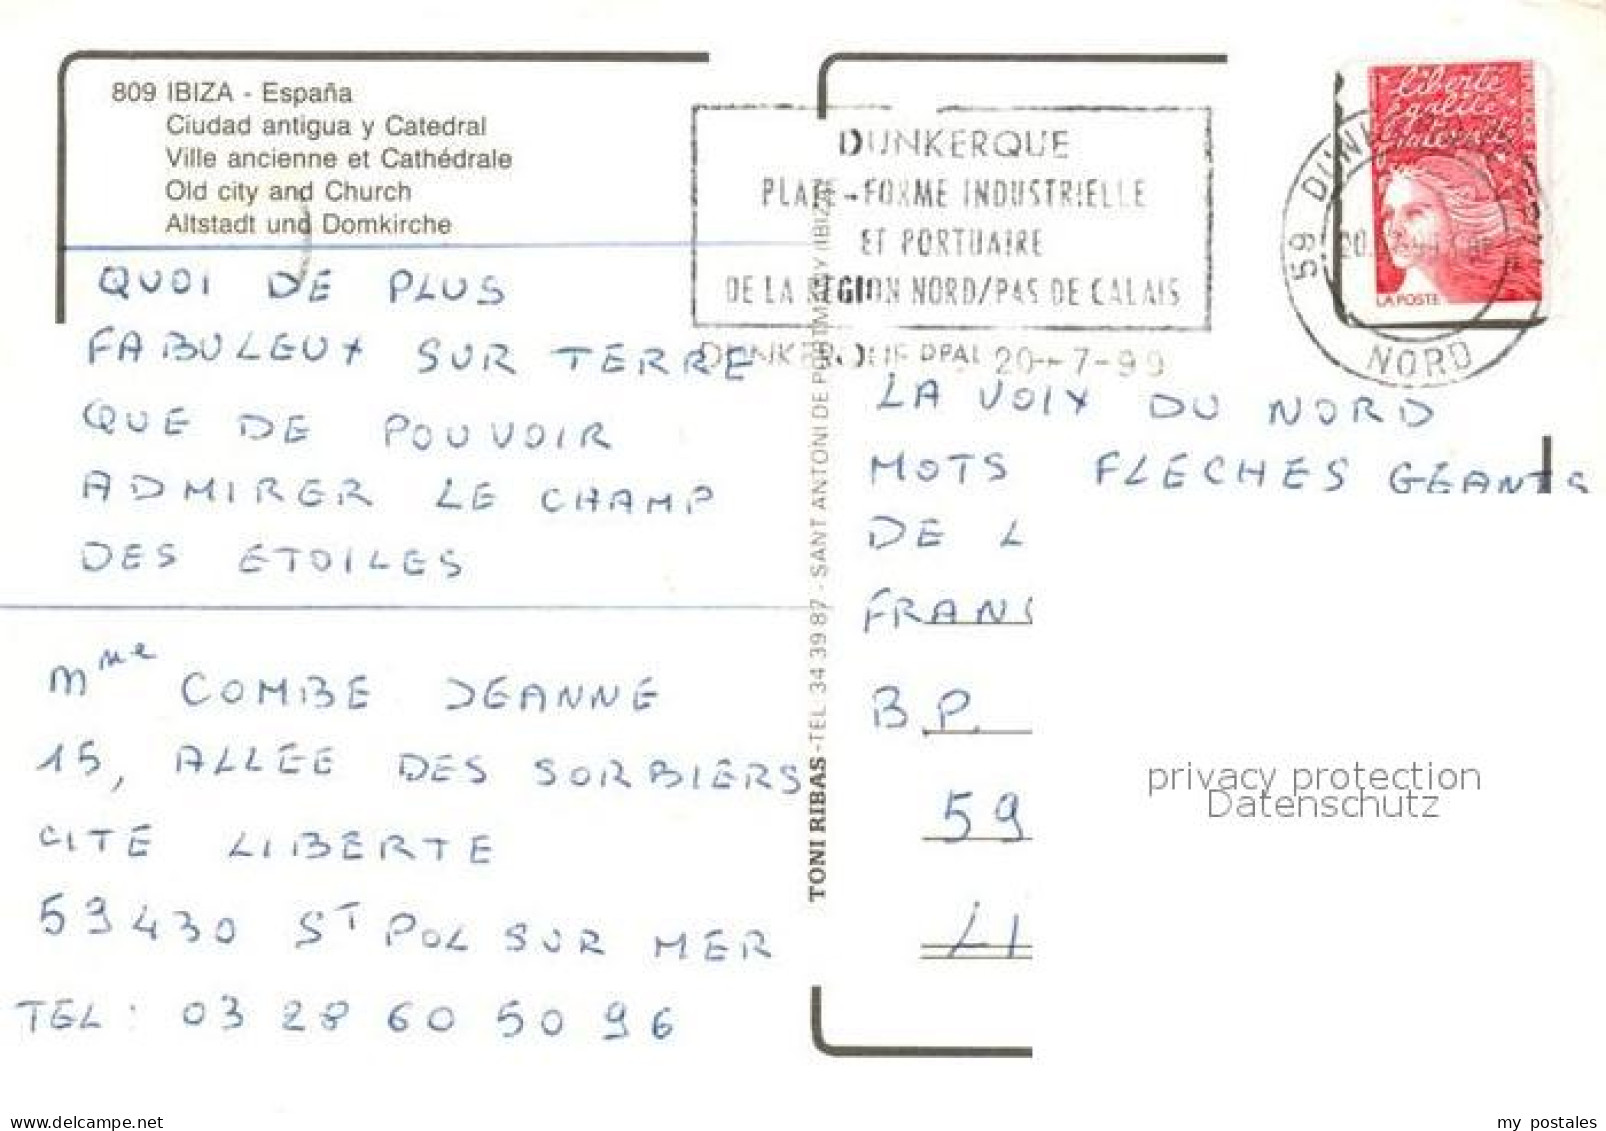 809 IBIZA - España
Ciudad antigua y Catedral
Ville ancienne et Cathédrale
Old city and Church
Altstadt und Domkirche
QUOI DE PLUS
FABULEUX SUR TERRE
QUE DE POUVOIR
ADMIRER LE CHAMP
DES ETOILES
Mme COMBE JEANNE
15, ALLEE DES SORBIERS
CITE LIBERTE
59430 ST POL SUR MER
TEL : 03 28 60 50 96
TONI RIBAS - TEL. 34 39 87 - SANT ANTONI DE PORTMANY (IBIZA)
DUNKERQUE
PLATE-FORME INDUSTRIELLE
ET PORTUAIRE
DE LA REGION NORD/PAS DE CALAIS
DUNKERQUE PPAL 20-7-99
liberté
égalité
fraternité
LA POSTE
59 DUNK
NORD
LA VOIX DU NORD
MOTS FLECHES GEANTS
DE L
FRAN
B.P.
59
LI
privacy protection
Datenschutz
www.delcampe.net
my postales